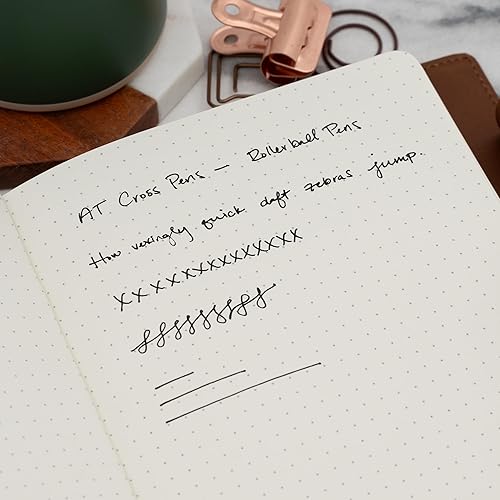 AT Cross Pens — Rollerball Pens
How vexingly quick daft zebras jump.
XXXXXXXXXXXXXX
fffffffff